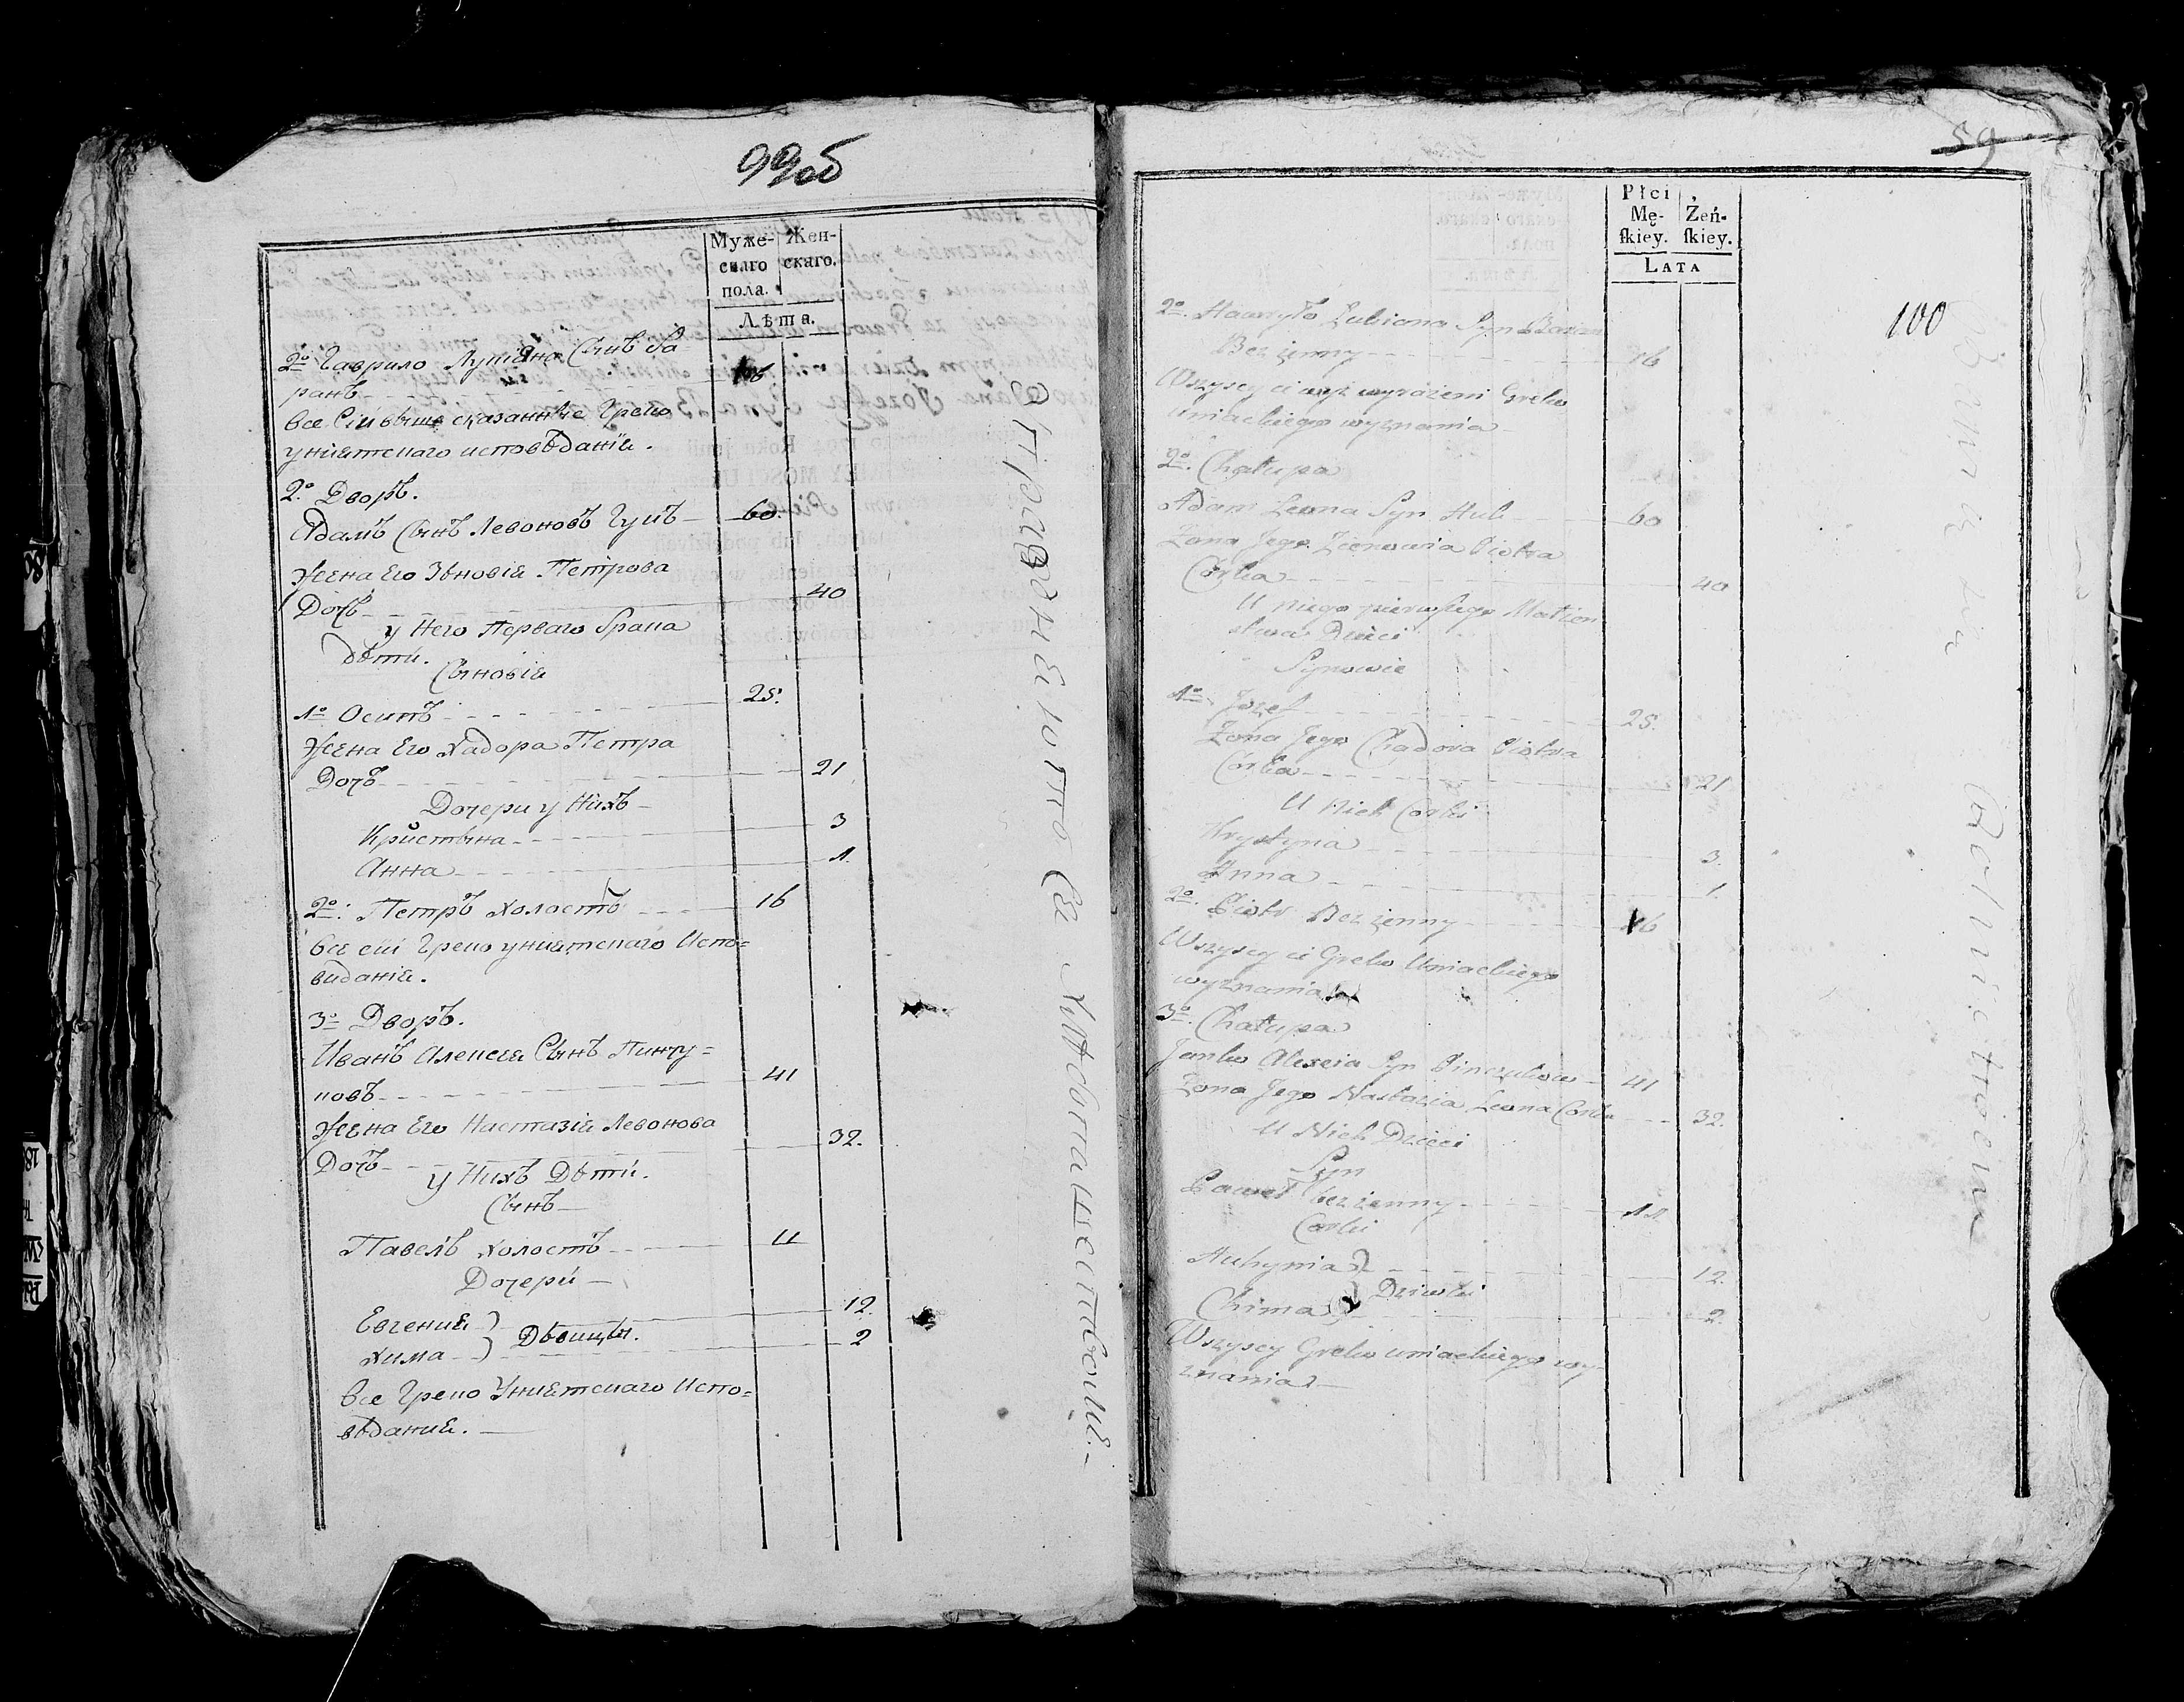 99об
Муже-
скаго
пола.
Жен-
скаго.
Лѣта.
2º Гаврило Лупiяна Сынъ Ба-
ранъ 16
все Сiи выше сказаннiе Греко
унiятскаго исповѣданiя.
2º Дворъ.
Адамъ Сынъ Левоновъ Гуцъ 60.
Жена Его Зѣновiя Петрова
Дочъ 40
у Него Перваго Брака
дѣти.
Сыновiя
1º Осипъ 25.
Жена Его Хадора Петра
Дочъ 21
Дочери у Нихъ
Кристына 3
Анна 1.
2º: Петръ Холостъ 16
все сiи Греко униятскаго Испо=
виданiя.
3º Дворъ.
Иванъ Алексея Сынъ Пинчу=
ковъ 41
Жена Его Настазiя Левонова
Дочъ 32.
у Нихъ Дѣти.
Сынъ
Павелъ Холостъ 11
Дочери
Евгения } 12.
Хима } Дѣвицы. 2
Все Греко Униятскаго Испо=
вѣдания.
59
100
Płci
Mę-
ſkiey.
Żeń-
ſkiey.
LATA
2º. Hawryło Syn
Bezżenny 16
Wszyscy ci wyż wyrażeni Greko
uniackiego wyznania
2º. Chałupa
Adam Leona Syn 60
Żona Jego Zienowia Piotra
Corka 40
U niego pierwszego Małżen
stwa Dzieci
Synowie
1º Jozef 25.
Żona Jego Chadora Piotra
Corka 21
U Nich Corki
Krystyna 3.
Anna 1.
2º. Piotr Bezżenny 16
Wszyscy ci Greko Uniackiego
wyznania
3º. Chałupa
Janko Alexeia Syn Pinczukow 41
Żona Jego Nastazia Leona Corka 32.
U Nich Dzieci
Syn
Paweł bezżenny 11.
Corki
Auhynia } 12.
Chima } Dziewki 2.
Wszyscy Greko uniackiego wy
znania